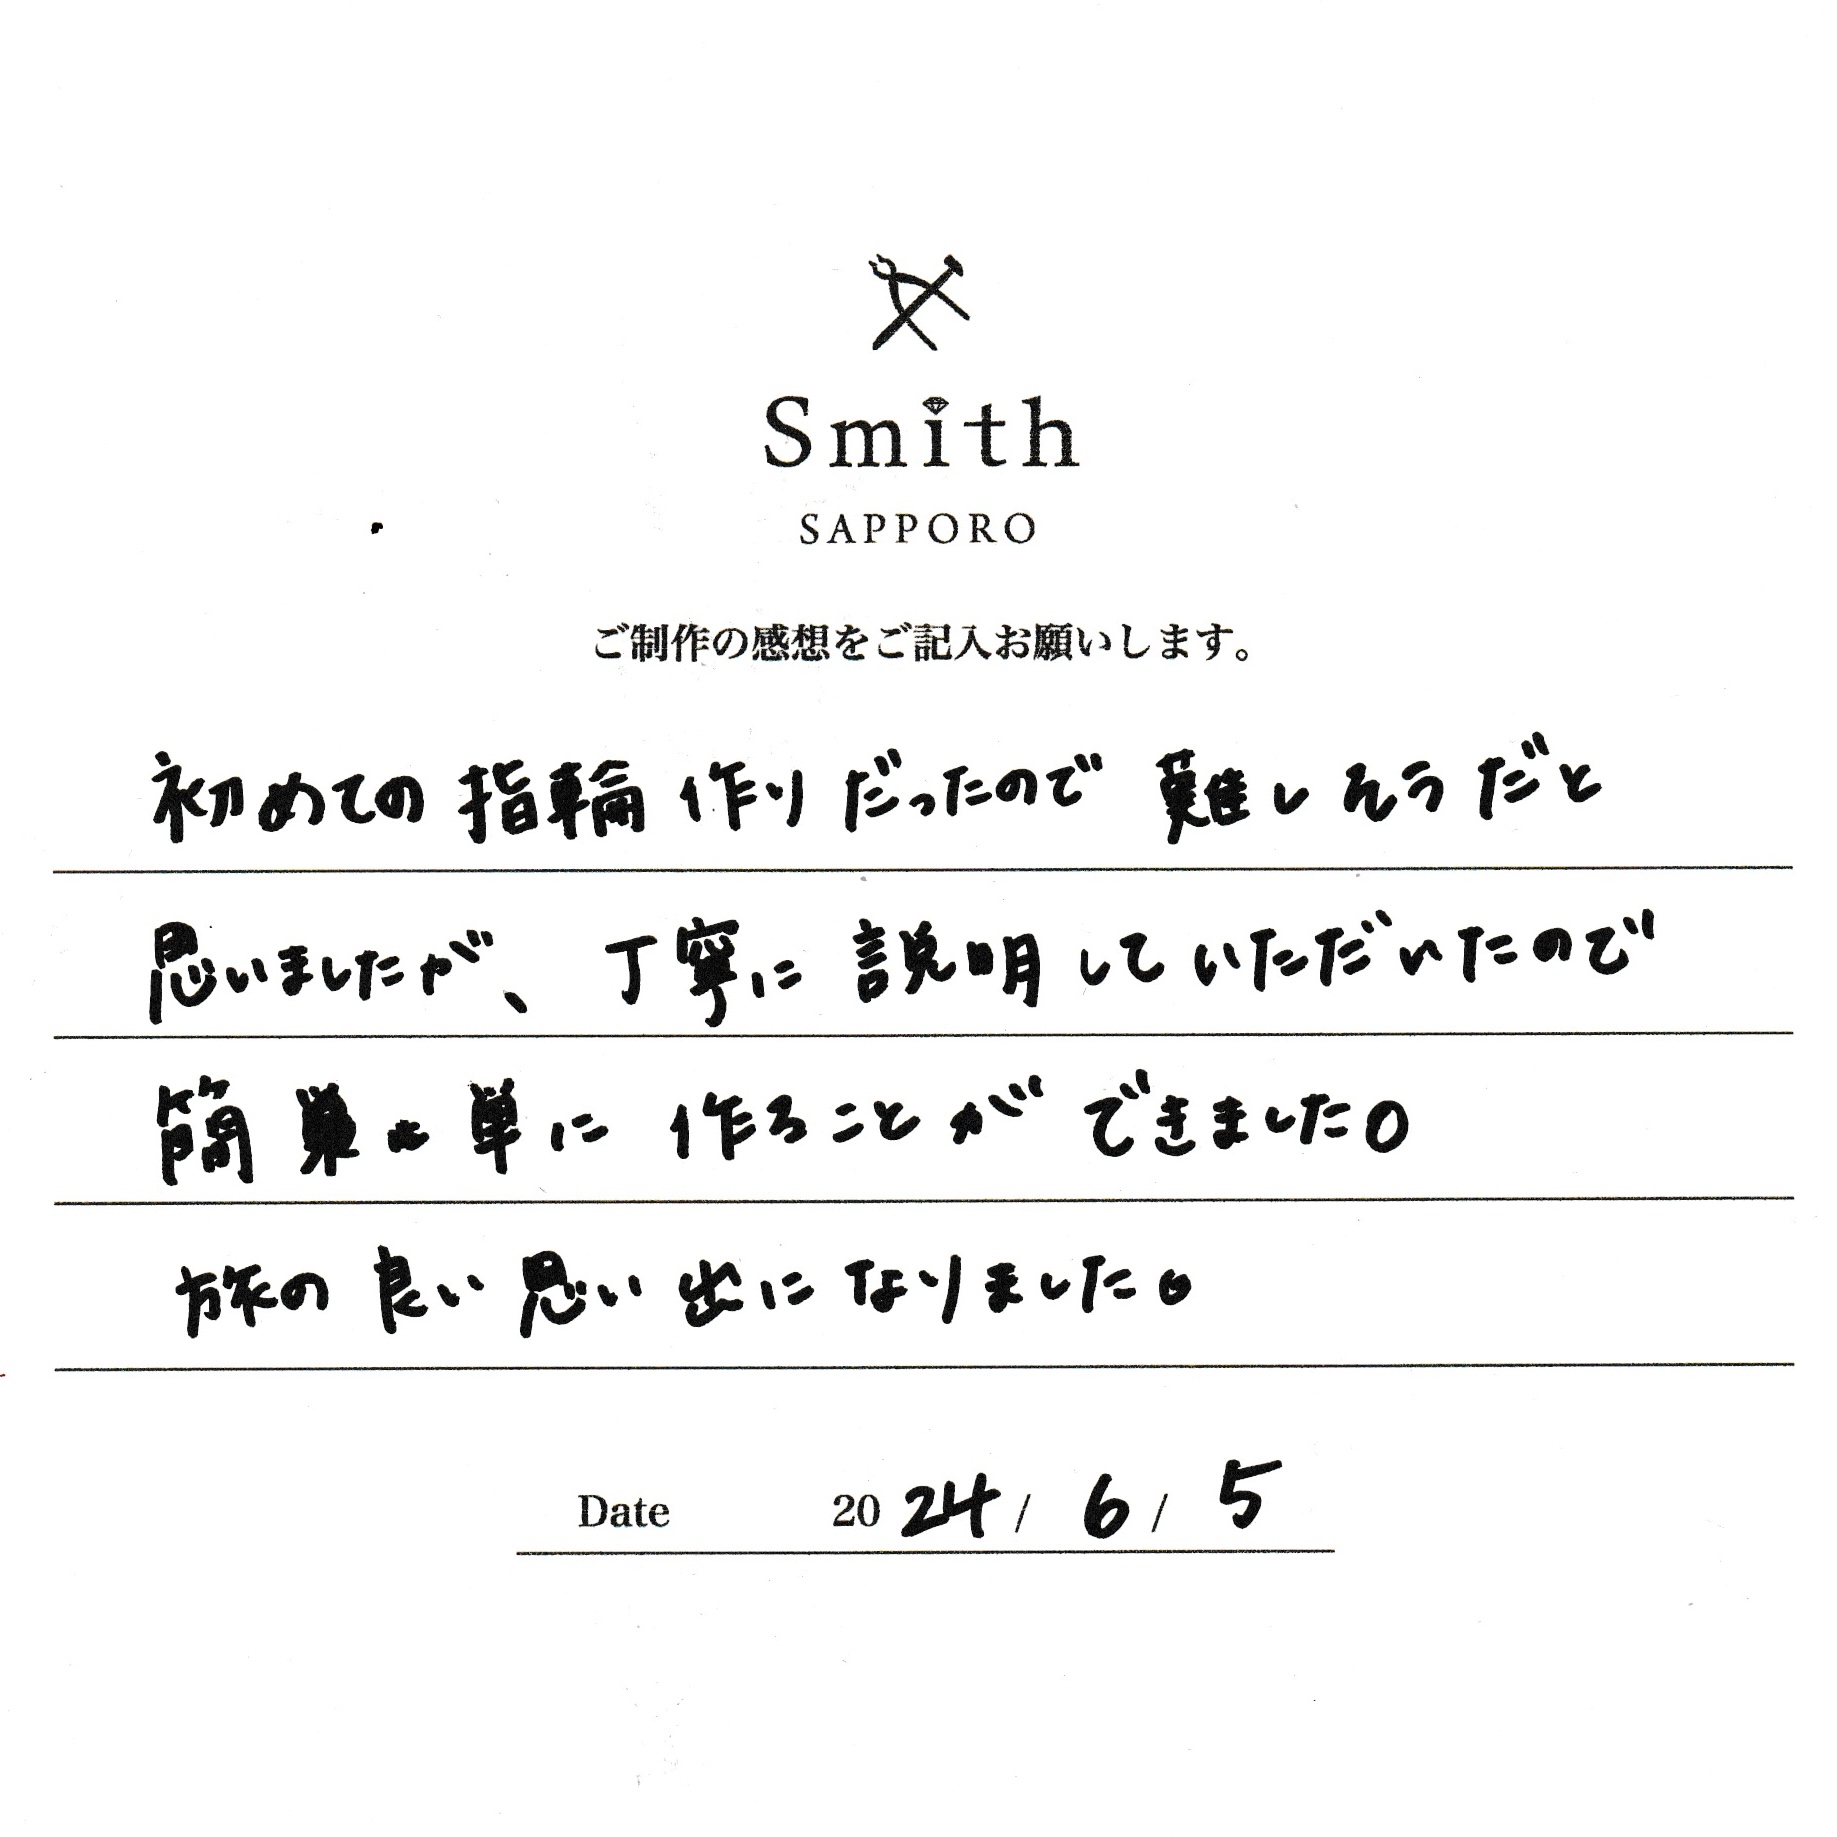 Smith
SAPPORO
ご制作の感想をご記入お願いします。
初めての指輪作りだったので難しそうだと
思いましたが、丁寧に説明していただいたので
簡単に作ることができました。
旅の良い思い出になりました。
Date 2024/6/5